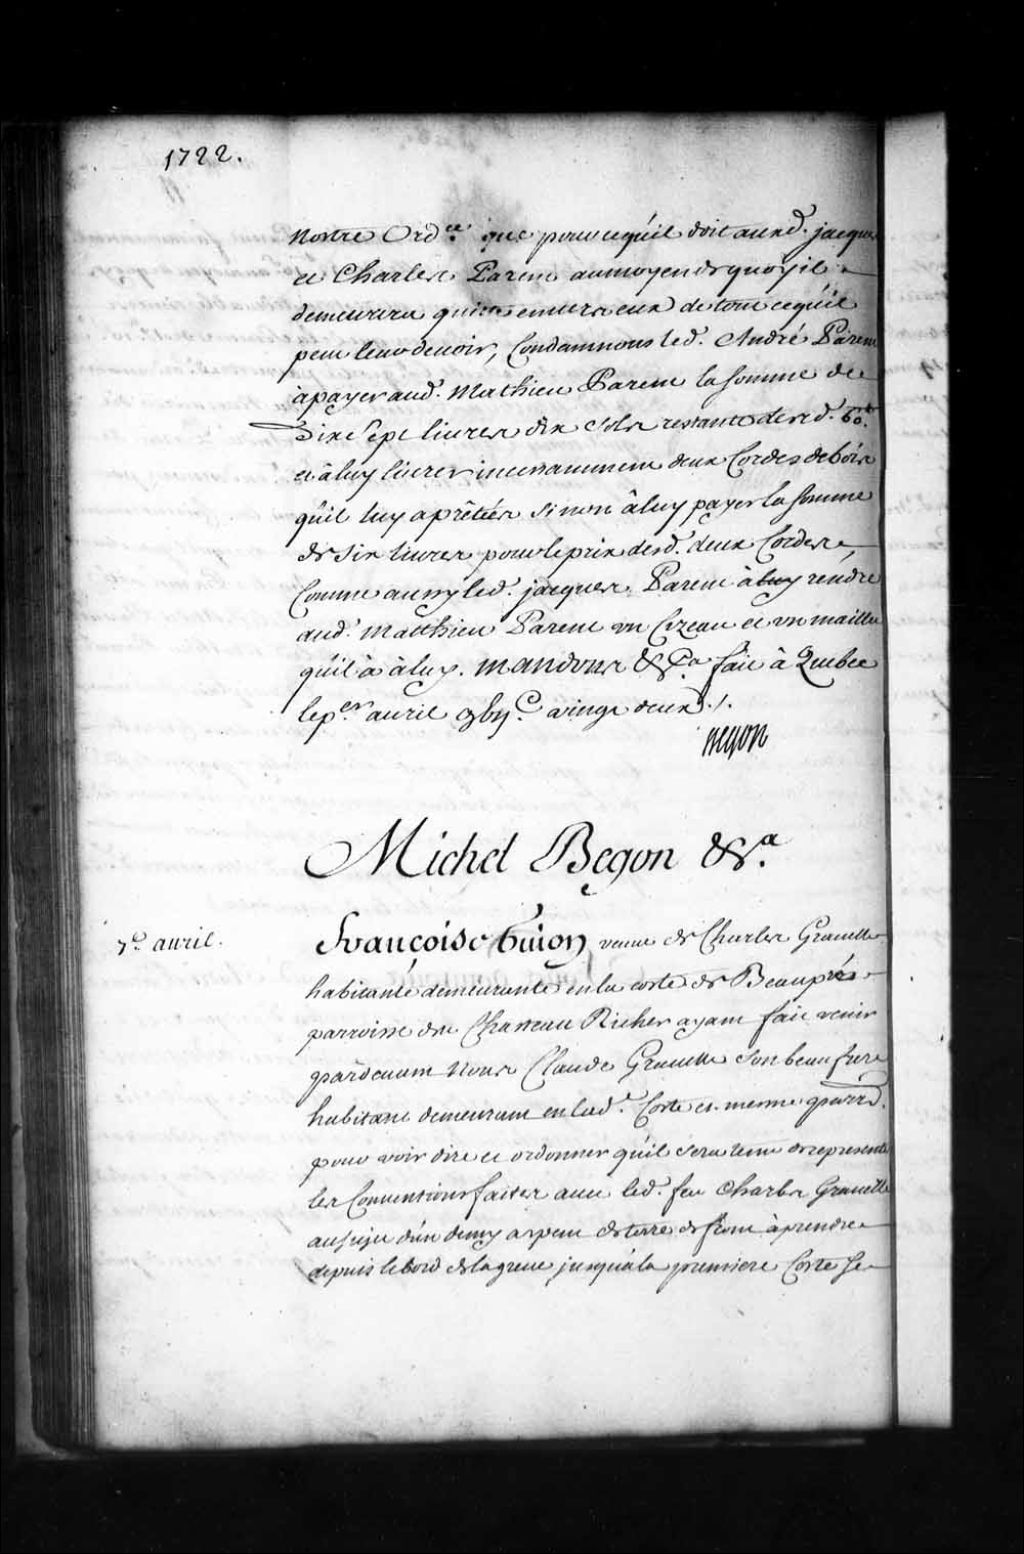 1722.
Nostre Ord.ce que pour ce qu'il doit ausd. jacques
et Charles Parent au moyen de quoy il
demeurera quitte envers eux de tout ce qu'il
peut leur devoir, Condamnons led. André Parent
à payer aud. Mathieu Parent la somme de
Dix Sept livres dix sols restante desd. 60.lt
et à luy livrer incessamment deux Cordes de bois
qu'il luy a prêtées sinon à luy payer la somme
de six livres pour le prix desd. deux Cordes,
Comme aussy led. jacques Parent à luy rendre
aud. Matthieu Parent un Cizeau et un maillet
qu'il à à luy. Mandons &c.a fait à Quebec
le p.er avril 17bij.c vingt deux ./.
Begon
Michel Begon &c.a
7.e avril.
Françoise Guion veuve de Charles Gravelle
habitante demeurante en la coste de Beaupré
parroisse du Chasteau Richer ayant fait venir
pardevant Nous Claude Gravelle son beau frere
habitant demeurant en lad. Coste et mesme parr.d.
pour voir dire et ordonner qu'il sera tenu de representer
les Conventions faites avec led. feu Charles Gravelle
au sujet d'un demy arpent de terre de front à prendre
depuis le bord de la greve jusqu'à la premiere Coste